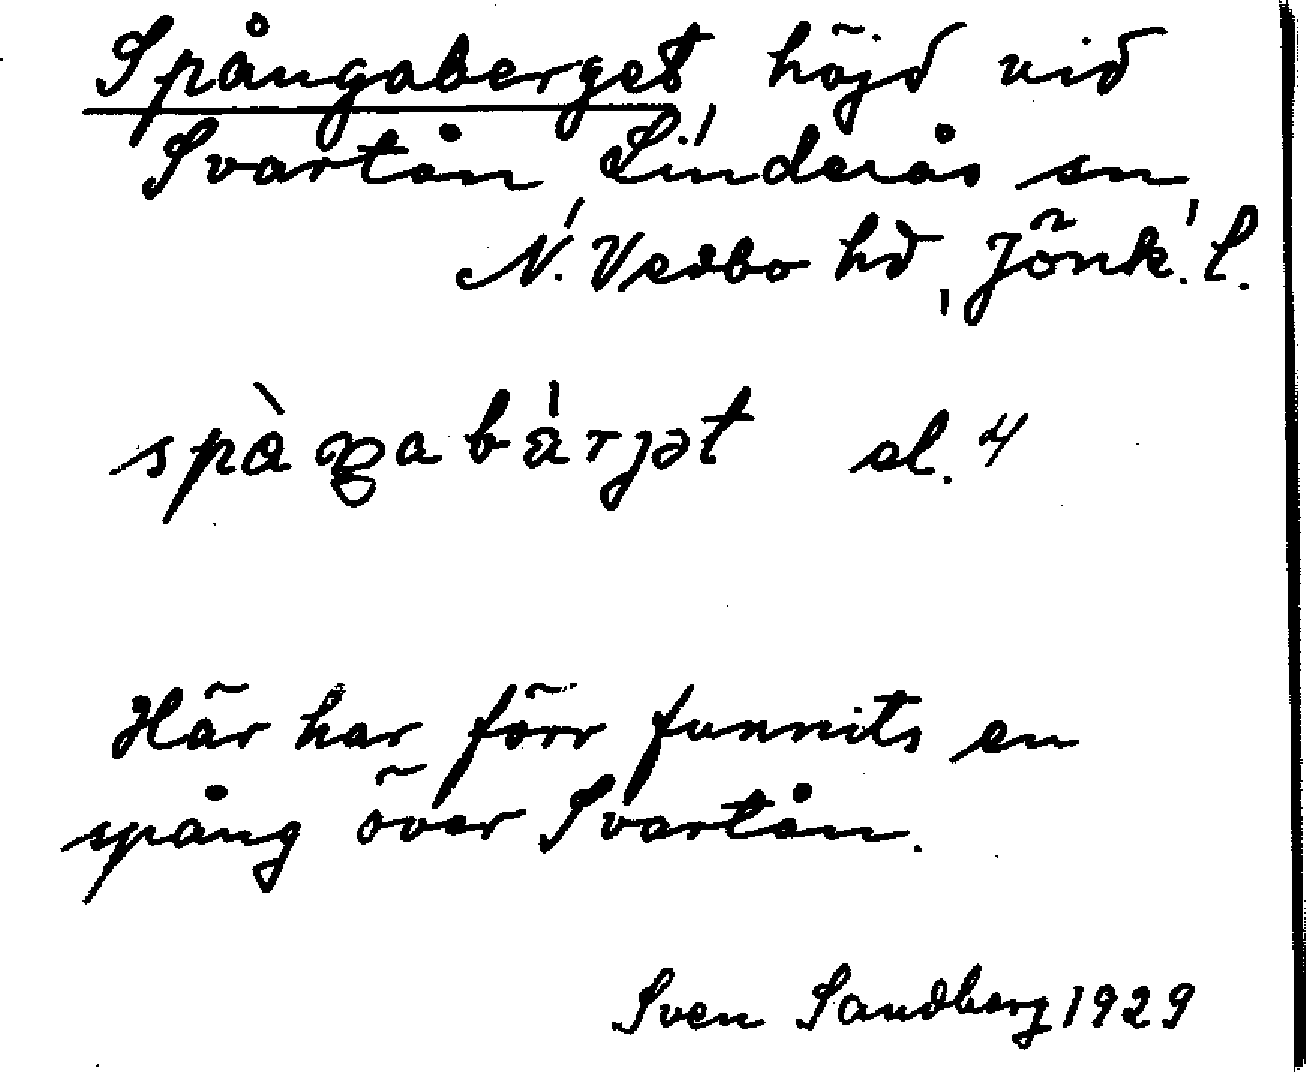 Spångaberget höjd vid
Svartån Linderås sn
N. Vedbo hd, Jönk. l.
spàŋabá̈rjət el. 4
Här har förr funnits en
spång över Svartån.
Sven Sandberg 1929